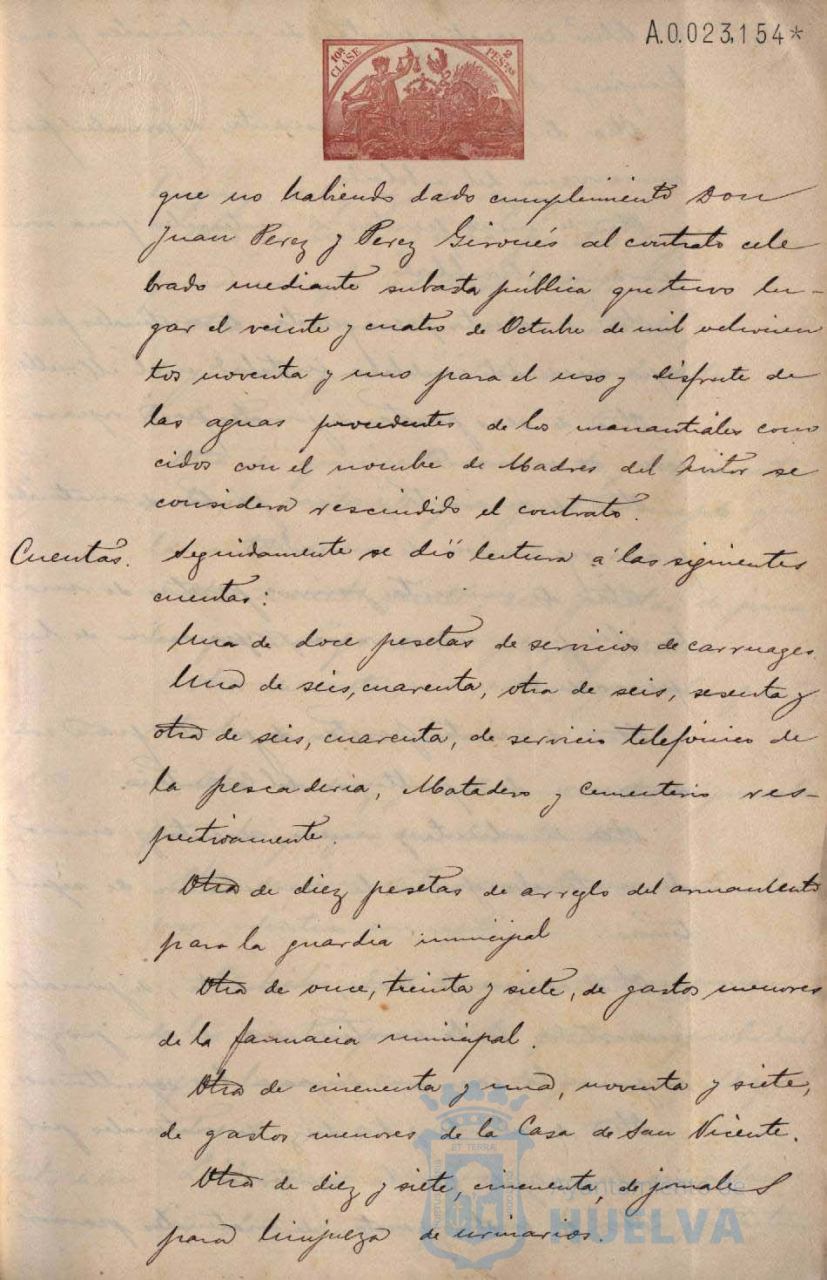 A.0.023,154*
10ª CLASE 2 PESETAS
que no habiendo dado cumplimiento Don
Juan Perez y Perez Gironés al contrato cele
brado mediante subasta pública que tuvo lu-
gar el veinte y cuatro de Octubre de mil ochocien
tos noventa y uno para el uso y disfrute de
las aguas procedentes de los manantiales cono
cidos con el nombre de Madres del Avitor se
considera rescindido el contrato.
Cuentas. Seguidamente se dió lectura á las siguientes
cuentas:
Una de doce pesetas de servicios de carruages.
Una de seis, cuarenta, otra de seis, sesenta y
otra de seis, cuarenta, de servicio telefónico de
la pescaderia, Matadero y Cementerio res-
pectivamente.
Otra de diez pesetas de arreglo del armamento
para la guardia municipal
Otra de once, treinta y siete, de gastos menores
de la farmacia municipal.
Otra de cincuenta y una, noventa y siete,
de gastos menores de la Casa de San Vicente.
Otra de diez y siete, cincuenta, de jornales
para limpieza de urinarios.
ET TERRÆ
Ayuntamiento de
HUELVA